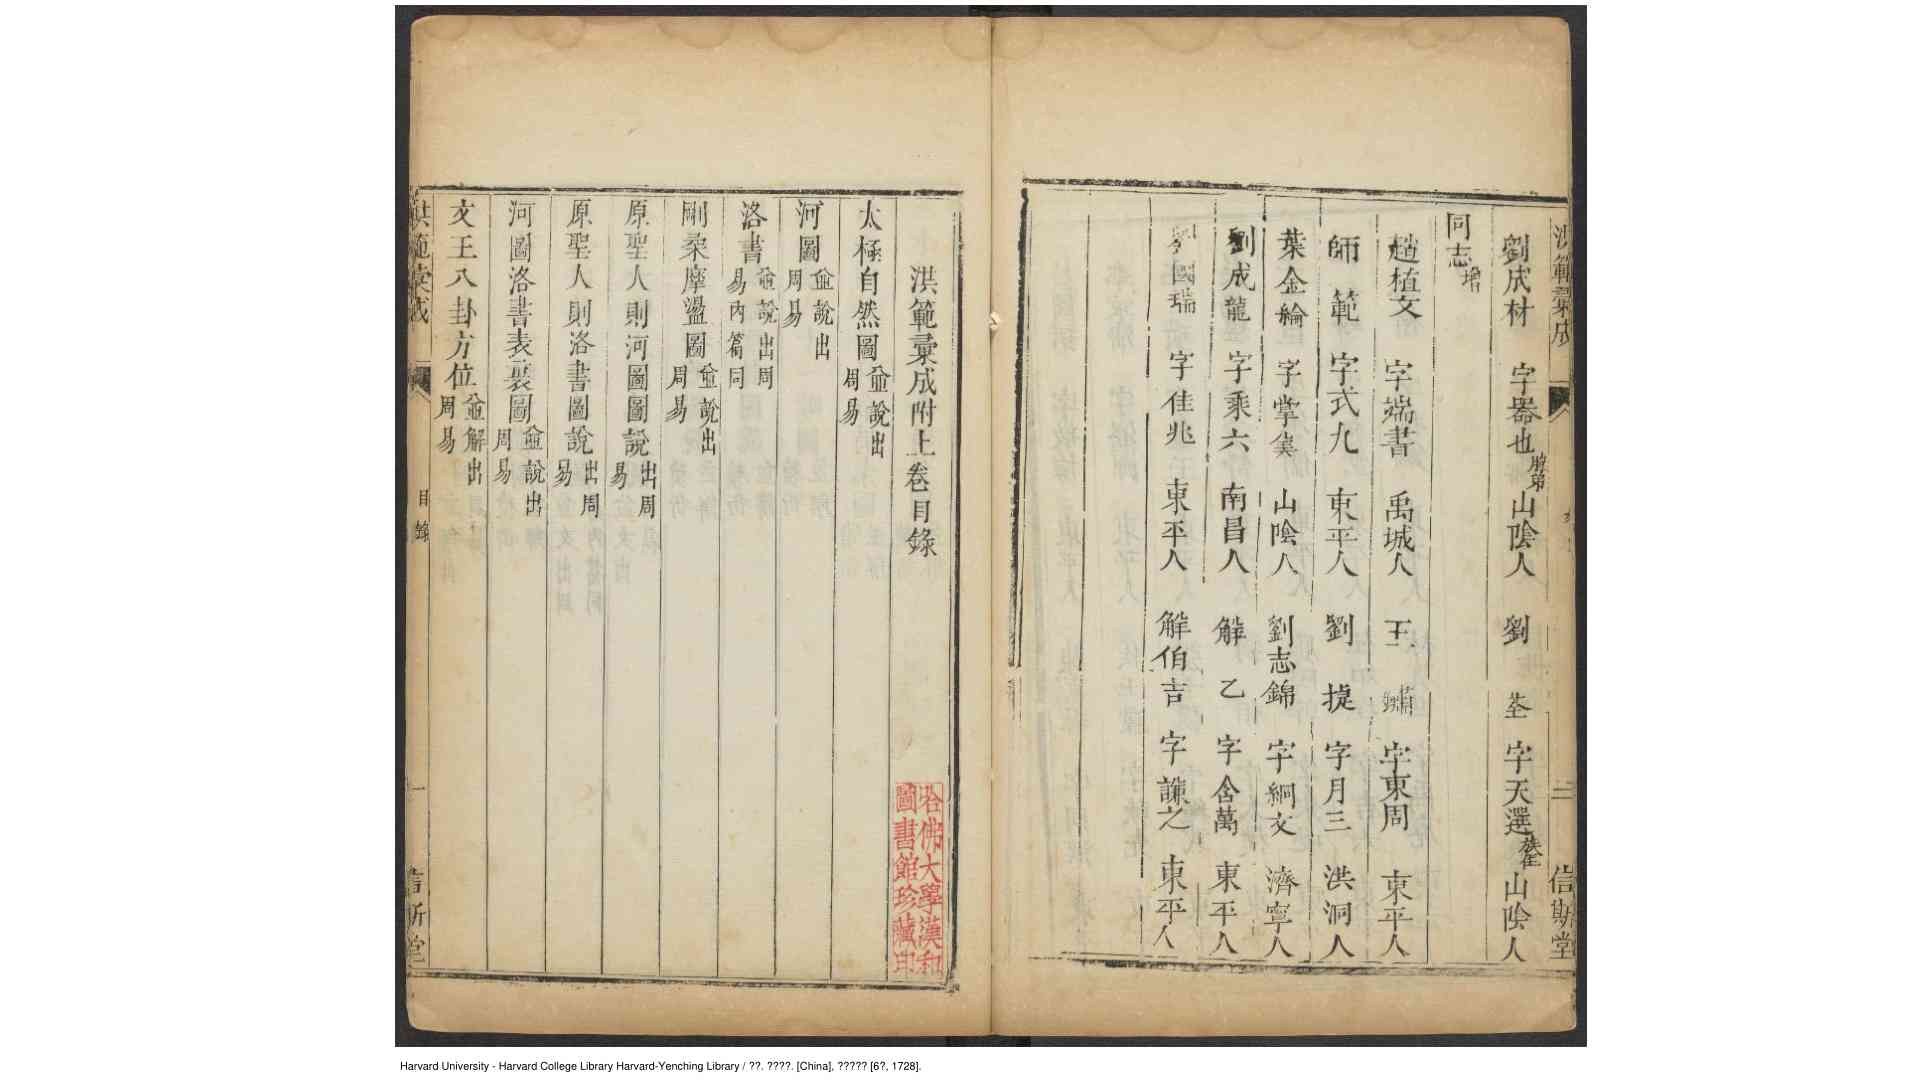 洪範彙成
三
信斯堂
劉成材 字器也胞弟 山陰人 劉 荃 字天選族侄 山陰人
同志增
趙植文 字端書 禹城人 王 字東周 東平人
師 範 字式九 東平人 劉 提 字月三 洪洞人
葉金綸 字掌 山陰人 劉志錦 字絅文 濟寧人
劉成龍 字乘六 南昌人 解 乙 字含萬 東平人
國瑞 字佳兆 東平人 解伯吉 字謙之 東平人
洪範彙成附上卷目錄
太極自然圖僉說出周易
河圖僉說出周易
洛書僉說出周易內篇同
剛柔摩盪圖僉說出周易
原聖人則河圖圖說出周易
原聖人則洛書圖說出周易
河圖洛書表裏圖僉說出周易
文王八卦方位僉解出周易
洪範彙成
目錄
一
信斯堂
哈佛大學漢和
圖書館珍藏印
Harvard University - Harvard College Library Harvard-Yenching Library / ??. ????. [China], ????? [6?, 1728].